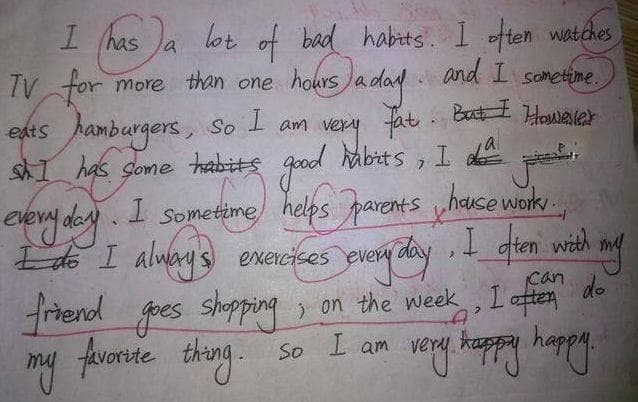 I has a lot of bad habits. I often watches
TV for more than one hours a day. and I sometime.
eats hamburgers, so I am very fat. But I However
I has some habits good habits, I
every day. I sometime helps parents house work.
I do I always exercises every day, I often with my
friend goes shopping, on the week, I often can do
my favorite thing. so I am very happy happy.